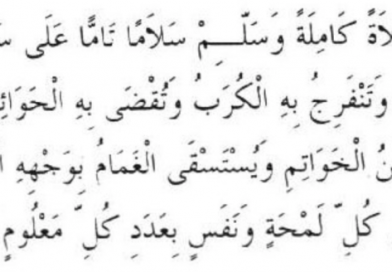 كَامِلَةً وَسَلِّمْ سَلَامًا تَامًّا عَلَى
وَتَنْفَرِجُ بِهِ الْكُرَبُ وَتُقْضَى بِهِ
الْخَوَاتِمِ وَيُسْتَسْقَى الْغَمَامُ بِوَجْهِهِ
كُلِّ لَمْحَةٍ وَنَفَسٍ بِعَدَدِ كُلِّ مَعْلُومٍ